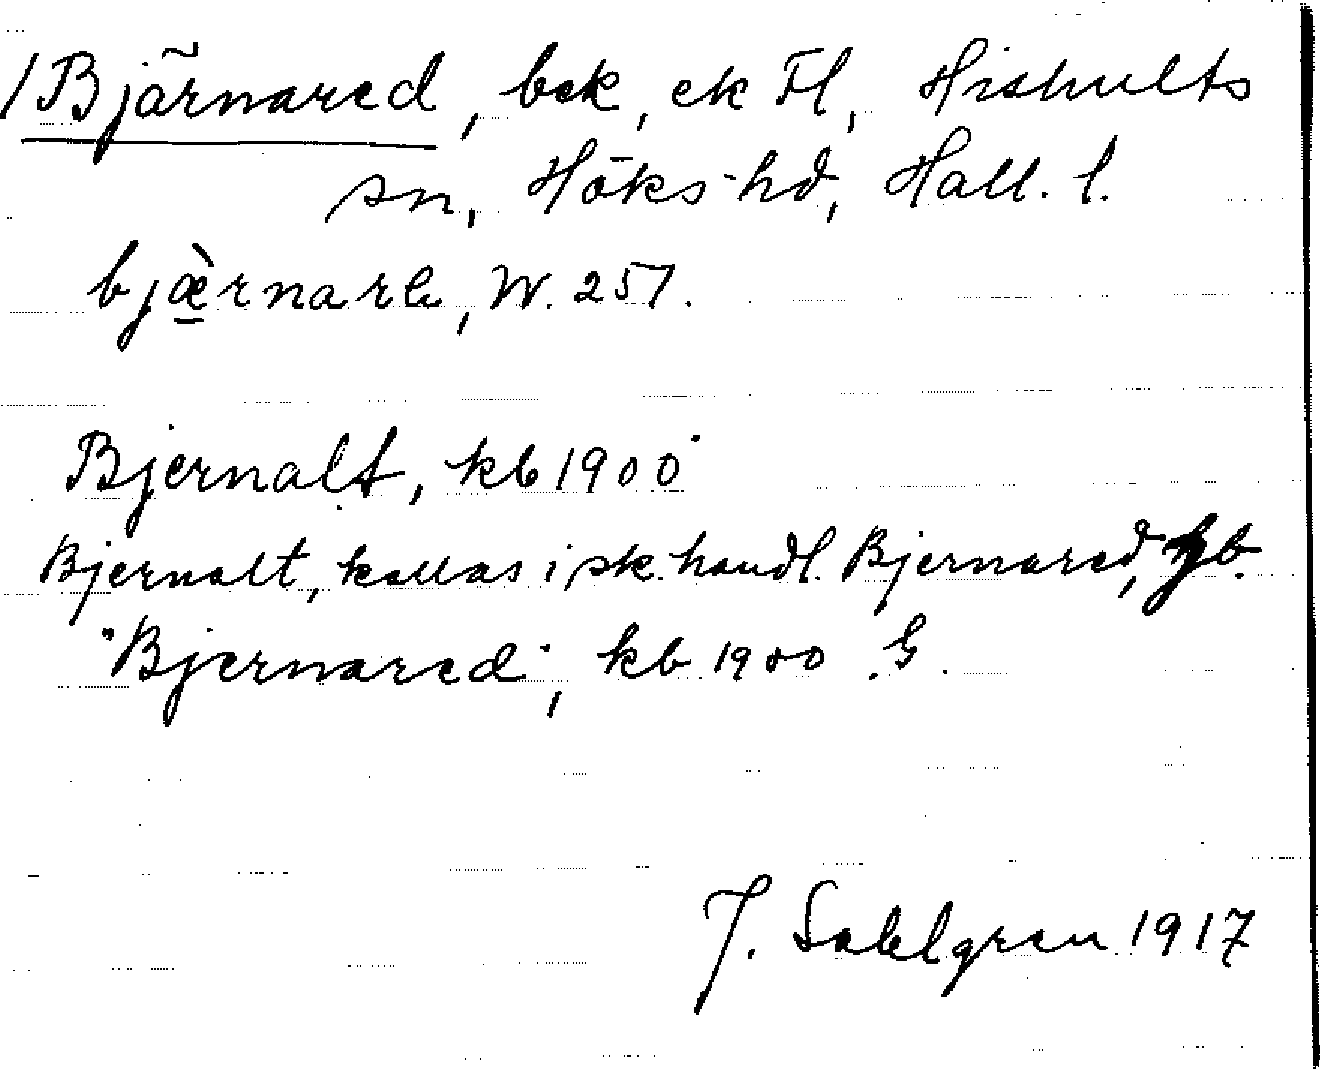 /Bjärnared, bek, ek Fl, Hishults
sn, Höks hd, Hall. l.
bjæ̀rnare, W. 257.
Bjernalt, kb 1900
Bjernalt, kallas i sk. handl. Bjernared, Jb.
"Bjernared", kb 1900 G.
J. Sahlgren 1917